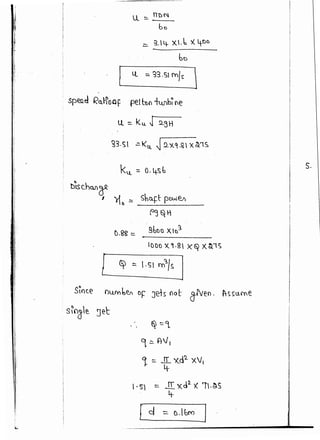 u = πDN
60
= 3.14 x 1.6 x 400
60
u = 33.51 m/s
speed Ratio of pelton turbine
u = ku √2gH
33.51 = Ku √2x9.81x275
ku = 0.456
Discharge
ηo = Shaft power
ρgQH
0.88 = 3600 x10³
1000 x 9.81 x Q x 275
Q = 1.51 m³/s
Since number of jets not given. Assume
single jet
∴ Q = q
q = AV₁
q = π/4 x d² x V₁
1.51 = π/4 x d² x 71.85
d = 0.16m
S.